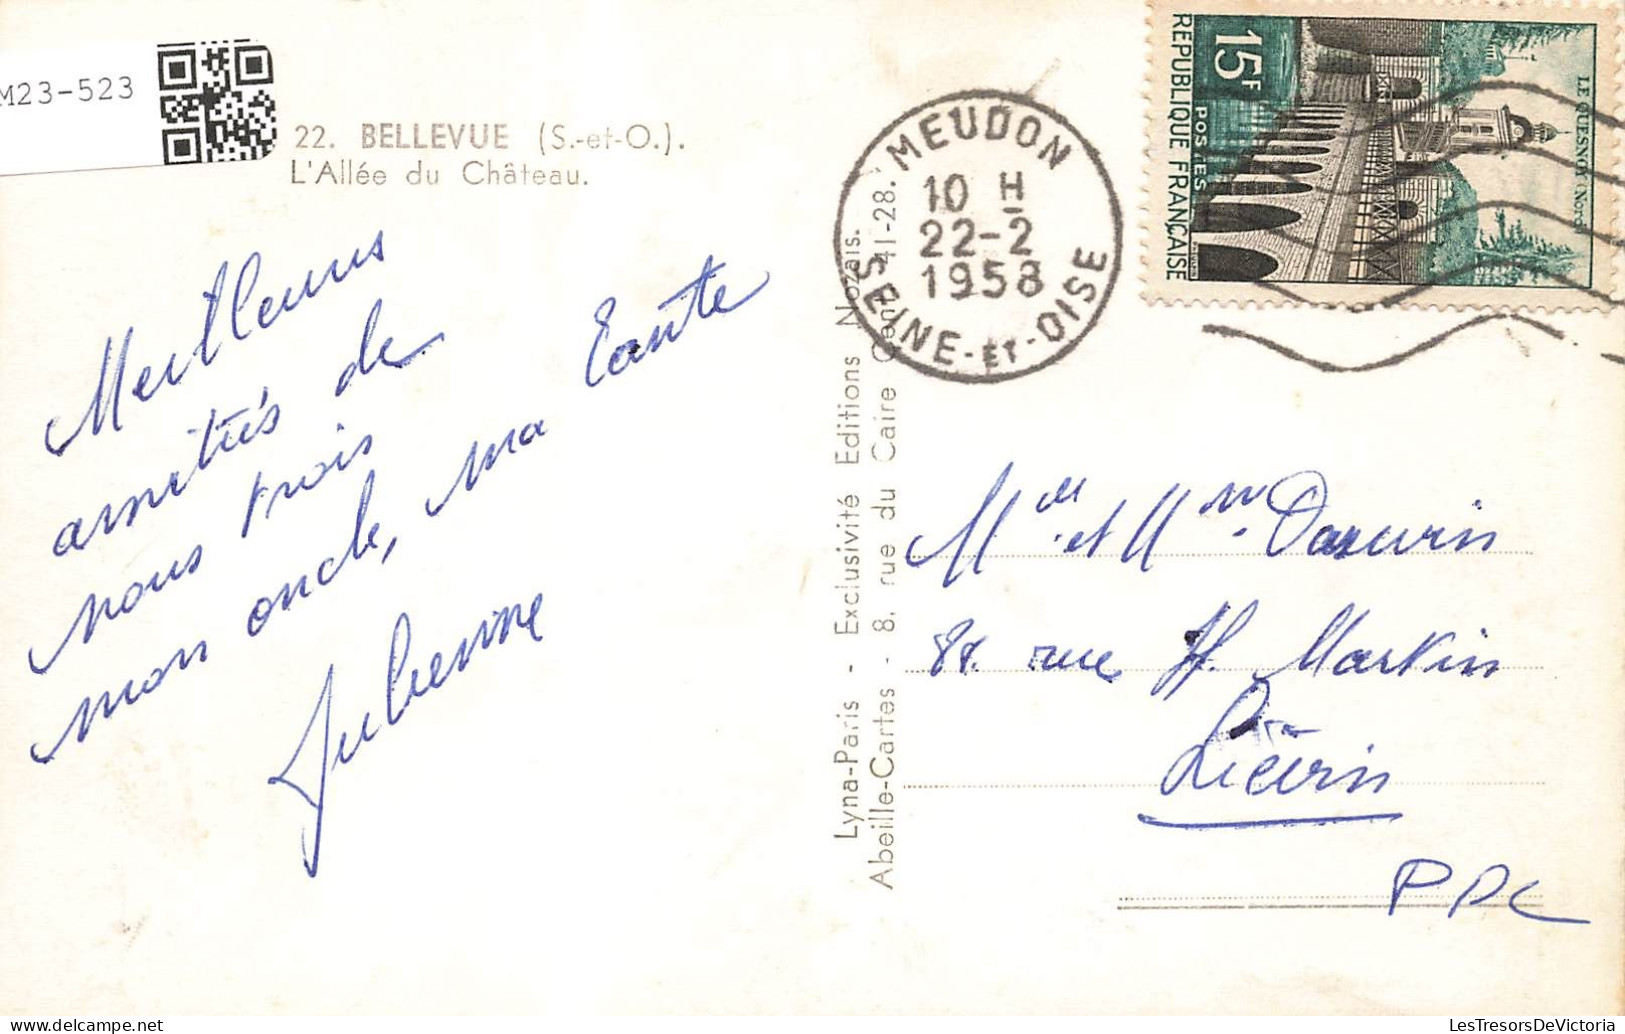 M23-523
22. BELLEVUE (S.-et-O.).
L'Allée du Château.
Meilleurs
amitiés de
nous trois
mon oncle, ma tante
MEUDON
10 H
22-2
1958
SEINE-ET-OISE
15F
POSTES
REPUBLIQUE FRANÇAISE
LE QUESNOY (Nord)
Lyna-Paris - Exclusivité Editions Nozais.
Abeille-Cartes - 8, rue du Caire 41-28.
et
rue
Liévin
PPC
LesTresorsDeVictoria